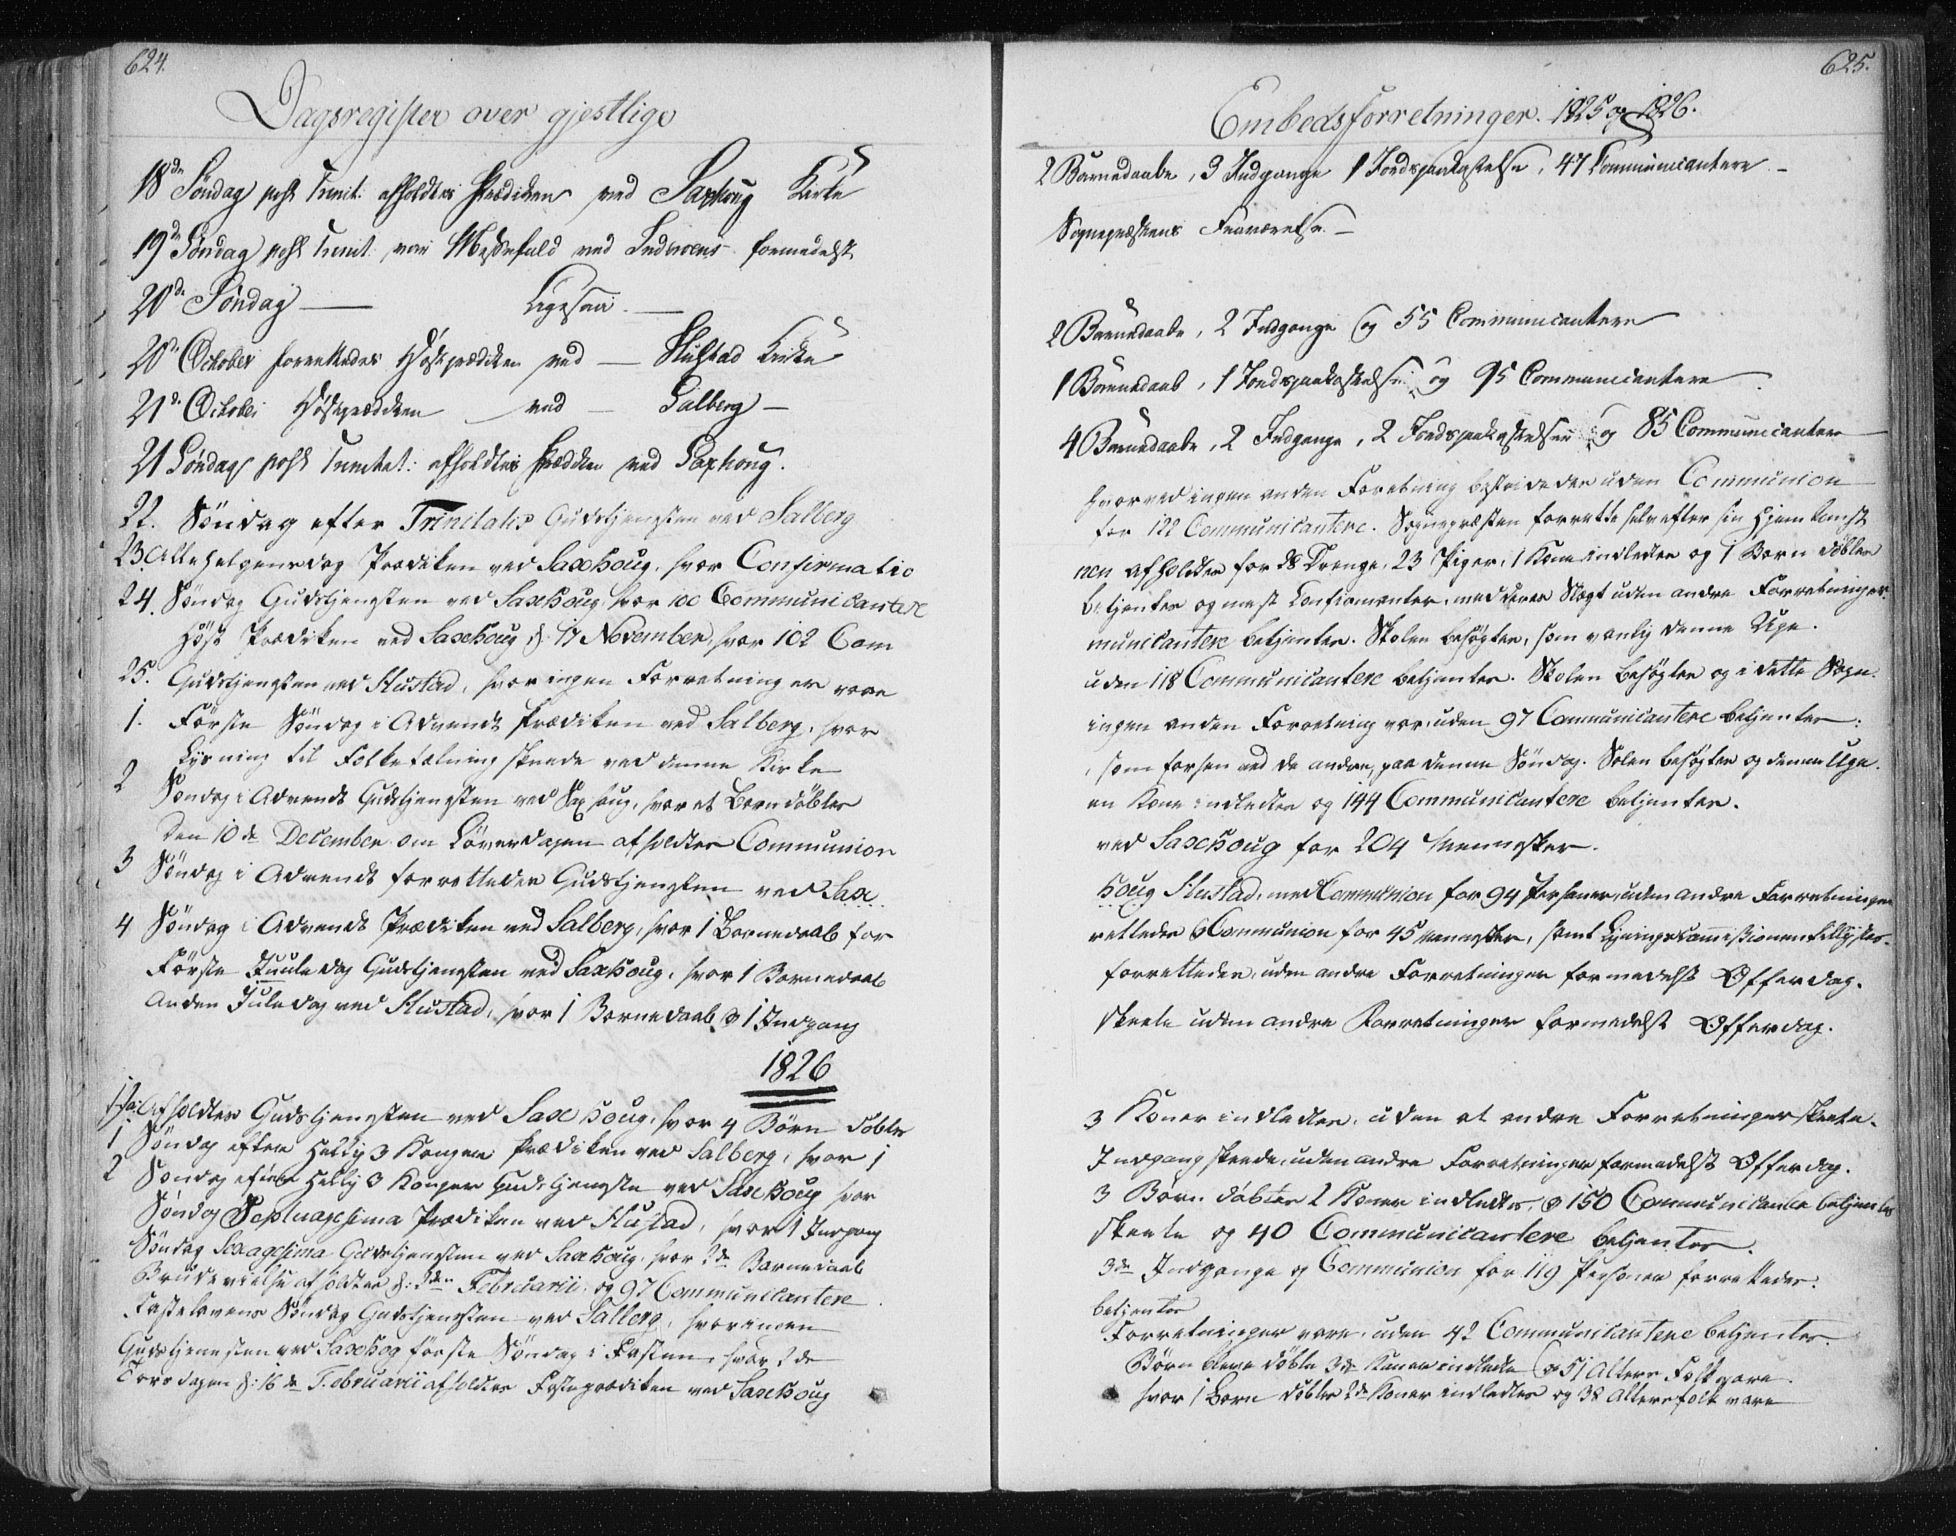 624.
Dagsregister over gjestlige
18de Söndag post Trinit: afholdtes Prædiken ved Saxhoug Kirke
19de Söndag post Trinit: var Messefald ved Inderoens formedelst
20de Söndag — Ligesaa. —
20de October forrettedes Höstprædiken ved — Hustad Kirke
21de October Höstprædiken ved — Salberg —
21 Söndag post Trinitat: afholdtes Prædiken ved Saxhoug.
22. Söndag efter Trinitatis Gudstjenesten ved Salberg
23. Allehelgensdag Prædiken ved Saxhoug, hvor Confirmatio
24. Söndag Gudstjenesten ved Saxhoug, hvor 100 Communicantere
Höst Prædiken ved Saxehoug d: 17 November, hvor 102 Com
25. Gudstjenesten ved Hustad, hvor ingen Forretninger vare
1. Förste Söndag i Advendt Prædiken ved Salberg, hvor
Lysning til Folketælning skeede ved denne Kirke
2 Söndag i Advendt Gudstjenesten ved Saxhoug, hvor et Barn döbtes
Den 10de December om Löverdagen afholdtes Communion
3 Söndag i Advendt forrettedes Gudstjenesten ved Sax
4 Söndag i Advendt Prædiken ved Salberg, hvor 1 Barnedaab for
Förste Juuledag Gudstjenesten ved Saxhoug, hvor 1 Barnedaab
Anden Juledag ved Hustad, hvor 1 Barnedaab & 1 Indgang
1826
Afholdtes Gudstjenesten ved Saxehoug, hvor 4 Börn döbtes
1 Söndag efter Hellig 3 Konger Prædiken ved Salberg, hvor 1
2 Söndag efter Hellig 3 Konger Gudstjeneste ved Saxehoug hvor
Söndag Septuagesima Prædiken ved Hustad, hvor 1 Indgang
Söndag Sexagesima Gudstjenesten ved Saxehoug, hvor 2de Barnedaab
Brudevielse afholdtes d: 2den Februarii, og 97 Communicantere
Fastelavens Söndag Gudstjenesten ved Salberg, hvor ingen
Gudstjenesten ved Saxehog förste Söndag i Fasten, hvor 2de
Torsdagen d: 16de Februarii afholdtes Fasteprædiken ved Saxehoug
625.
Embedsforretninger. 1825 og 1826.
2 Barnedaabe, 3 Indgange 1 Jordspaakastelse, 47 Communicantere. —
Sognepræstens Fraværelse. —
2 Barnedaabe, 2 Indgange og 55 Communicantere
1 Barnedaab, 1 Jordspaakastelse og 95 Communicantere
4 Barnedaabe, 2 Indgange, 2 Jordspaakastelser og 85 Communicantere
hvorved ingen anden Forretning bestridedes uden Communion
for 122 Communicantere. Sognepræsten forrettede selv efter sin Hjemkomst
nen afholdtes for 28 Drenge, 23 Piger, 1 Kone indledtes og 1 Barn döbtes
betjentes og mest Confirmanter, med deres Slægt uden andre Forretninger.
municantere betjentes. Skolen besøgtes, som vanlig denne Uge.
uden 118 Communicantere betjentes. Skolen besøgtes og i dette Sogn.
ingen anden Forretning var, uden 97 Communicantere betjentes:
som forhen ved de andre, paa denne Söndag. Solen besøgtes og denne Uge.
en Kone indledtes og 144 Communicantere betjentes.
ved Saxehoug for 204 Mennesker.
houg Hustad, med Communion for 94 Personer, uden andre Forretninger
rettedes & Communion for 45 Mennesker, samt
forrettedes, uden andre Forretninger formedelst Offerdag.
skeete uden andre Forretninger formedelst Offerdag.
3 Koner indledtes, uden at andre Forretninger skeete.
Indgang skeede, uden andre Forretninger formedelst Offerdag.
3 Börn döbtes 2 Koner indledtes, & 150 Communicantere betjentes
skeete og 40 Communicantere betjentes.
3de Indgange og Communion for 119 Personer forrettedes.
betjentes
Forretninger vare, uden 42 Communicantere betjentes
Börn bleve döbte 3de Koner indledte & 51 Alters Folk vare.
hvor 1 Barn döbtes 2de Koner indledtes og 38 Altersfolk vare